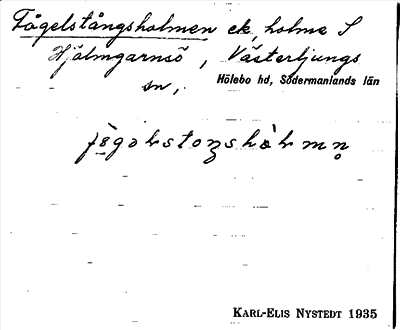 Fågelstångsholmen ek. holme S
Hjälmgarnsö, Västerljungs
sn, Hölebo hd, Södermanlands län
KARL-ELIS NYSTEDT 1935